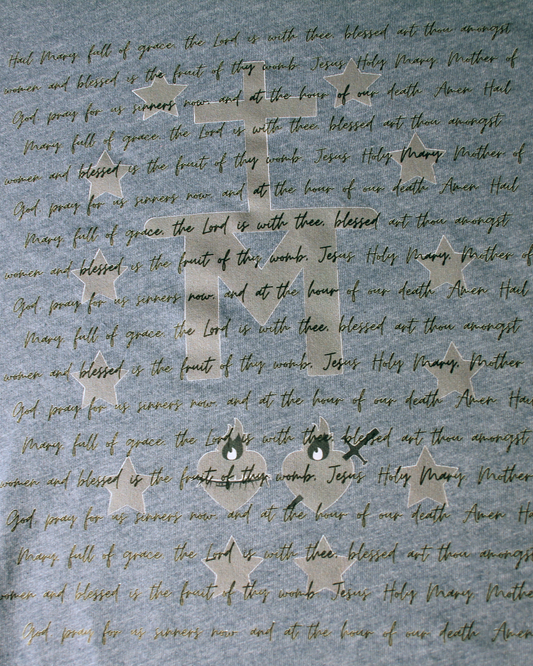 Hail Mary, full of grace. the Lord is with thee. blessed art thou amongst
women and blessed is the fruit of thy womb. Jesus Holy Mary Mother of
God pray for us sinners now. and at the hour of our death Amen Hail
Mary. full of grace. the Lord is with thee. blessed art thou amongst
women and blessed is the fruit of thy womb. Jesus Holy Mary. Mother of
God pray for us sinners now. and at the hour of our death Amen Hail
Mary. full of grace. the Lord is with thee. blessed art thou amongst
women and blessed is the fruit of thy womb. Jesus Holy Mary. Mother of
God pray for us sinners now. and at the hour of our death Amen Hail
Mary. full of grace. the Lord is with thee. blessed art thou amongst
women and blessed is the fruit of thy womb. Jesus Holy Mary. Mother
God pray for us sinners now. and at the hour of our death Amen Hai
Mary. full of grace. the Lord is with thee. blessed art thou amongst
women and blessed is the fruit of thy womb. Jesus Holy Mary. Mother
God pray for us sinners now. and at the hour of our death Amen H
Mary. full of grace. the Lord is with thee. blessed art thou amongst
women and blessed is the fruit of thy womb. Jesus Holy Mary. Mothe
God pray for us sinners now. and at the hour of our death Amen